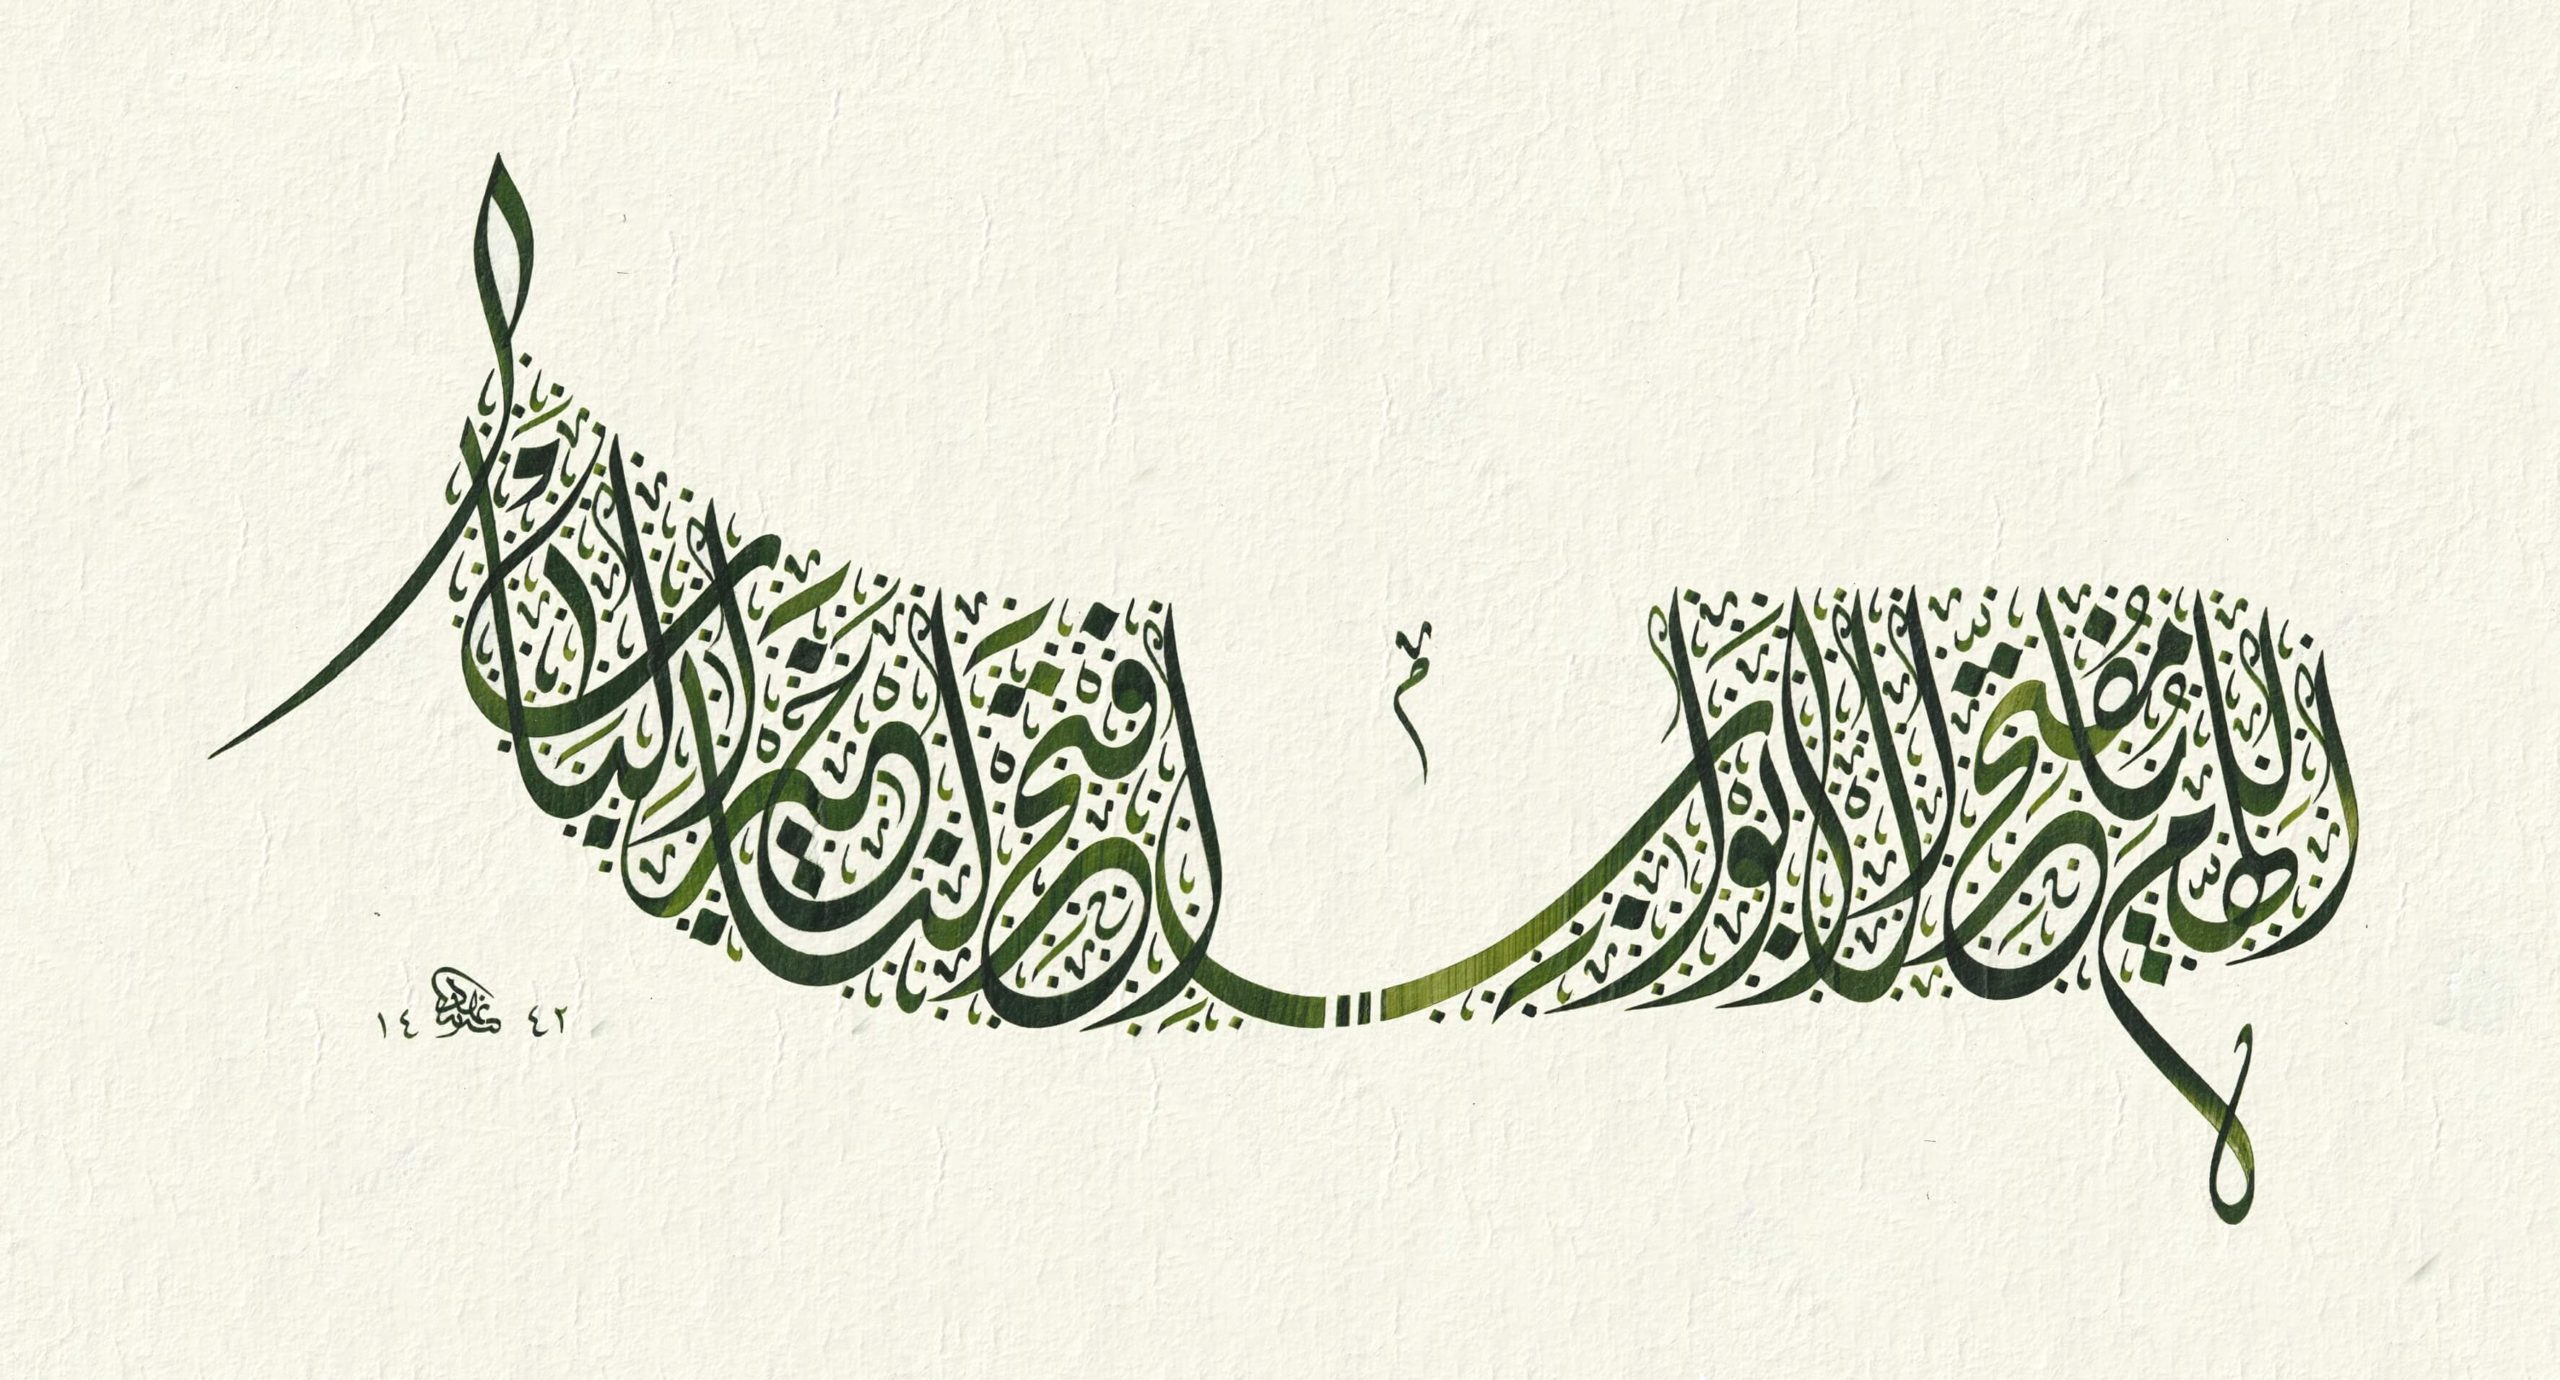 اللهم يا مفتح الابواب افتح لنا خير الابواب
١٤٤٢